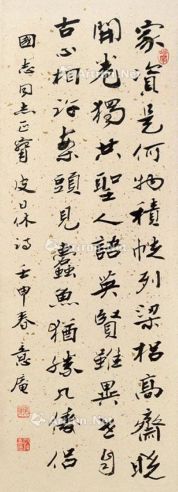 家資是何物積帙列梁梠高齋曉
開卷獨共聖人語英賢雖異世自
古心相許案頭見蠹魚猶勝凡儔侶
國志同志正 皮日休詩 壬申春 意庵